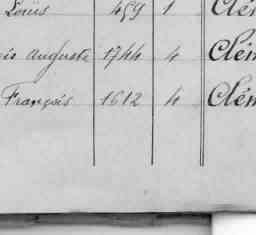 Louis 459 1 Clém
is Auguste 1744 4 Clém
François 1612 4 Clém